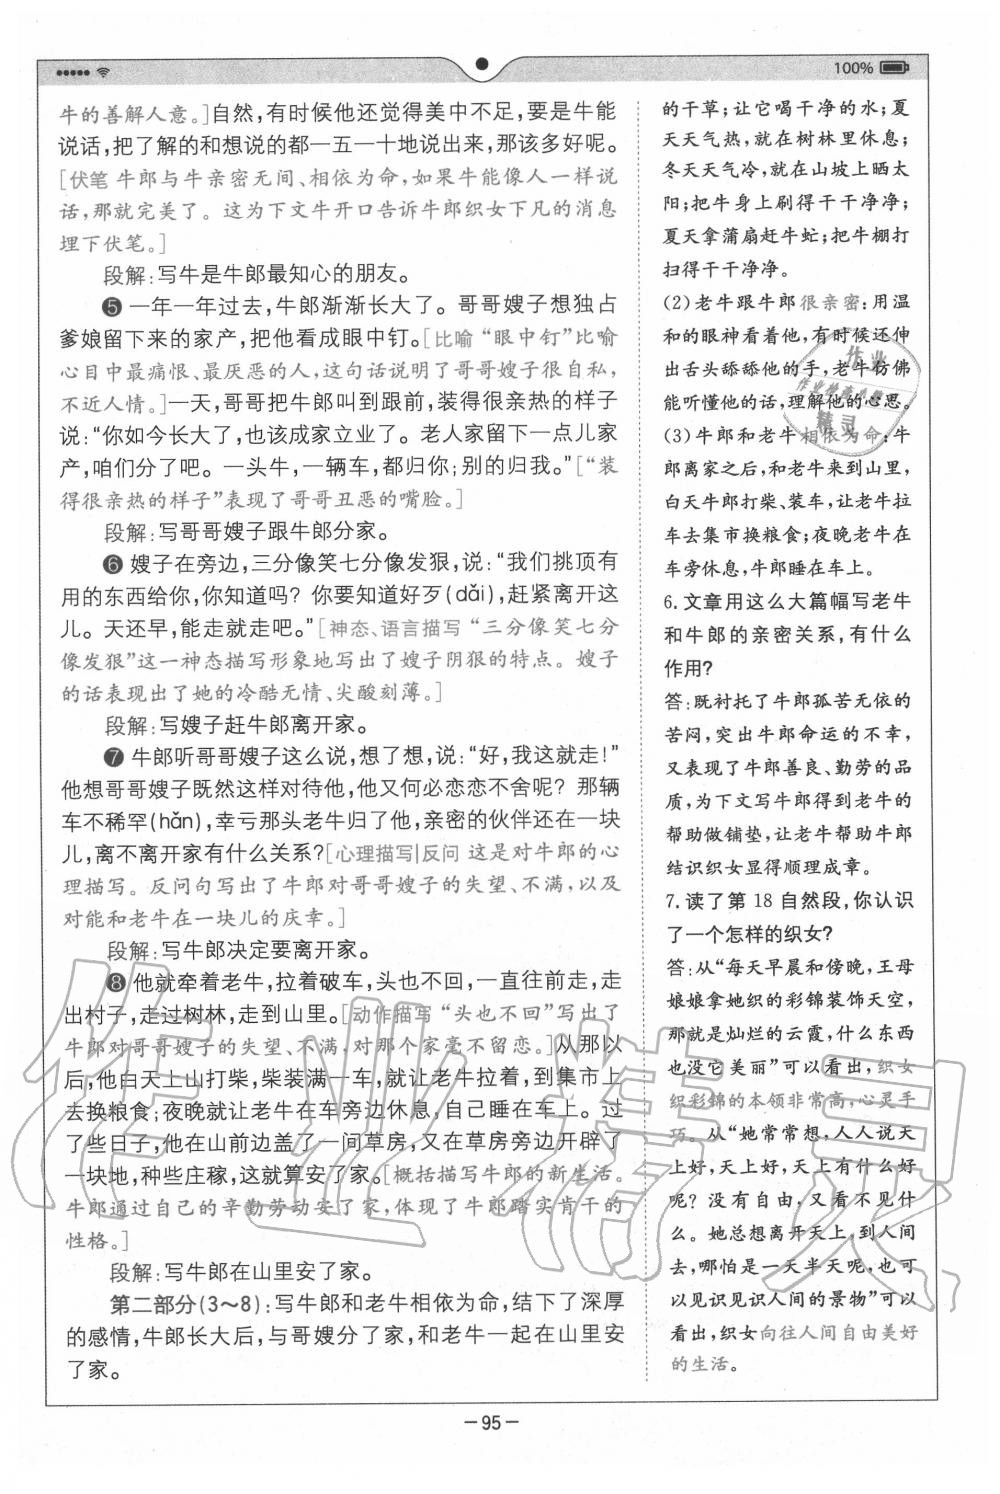 100%
牛的善解人意。]自然,有时候他还觉得美中不足,要是牛能
说话,把了解的和想说的都一五一十地说出来,那该多好呢。
[伏笔 牛郎与牛亲密无间、相依为命,如果牛能像人一样说
话,那就完美了。这为下文牛开口告诉牛郎织女下凡的消息
埋下伏笔。]
段解:写牛是牛郎最知心的朋友。
❺ 一年一年过去,牛郎渐渐长大了。哥哥嫂子想独占
爹娘留下来的家产,把他看成眼中钉。[比喻 “眼中钉”比喻
心目中最痛恨、最厌恶的人,这句话说明了哥哥嫂子很自私,
不近人情。]一天,哥哥把牛郎叫到跟前,装得很亲热的样子
说:“你如今长大了,也该成家立业了。老人家留下一点儿家
产,咱们分了吧。一头牛,一辆车,都归你;别的归我。”[“装
得很亲热的样子”表现了哥哥丑恶的嘴脸。]
段解:写哥哥嫂子跟牛郎分家。
❻ 嫂子在旁边,三分像笑七分像发狠,说:“我们挑顶有
用的东西给你,你知道吗?你要知道好歹(dǎi),赶紧离开这
儿。天还早,能走就走吧。”[神态、语言描写 “三分像笑七分
像发狠”这一神态描写形象地写出了嫂子阴狠的特点。嫂子
的话表现出了她的冷酷无情、尖酸刻薄。]
段解:写嫂子赶牛郎离开家。
❼ 牛郎听哥哥嫂子这么说,想了想,说:“好,我这就走!”
他想哥哥嫂子既然这样对待他,他又何必恋恋不舍呢?那辆
车不稀罕(hǎn),幸亏那头老牛归了他,亲密的伙伴还在一块
儿,离不离开家有什么关系?[心理描写|反问 这是对牛郎的心
理描写。反问句写出了牛郎对哥哥嫂子的失望、不满,以及
对能和老牛在一块儿的庆幸。]
段解:写牛郎决定要离开家。
❽ 他就牵着老牛,拉着破车,头也不回,一直往前走,走
出村子,走过树林,走到山里。[动作描写 “头也不回”写出了
牛郎对哥哥嫂子的失望、不满,对那个家毫不留恋。]从那以
后,他白天上山打柴,柴装满一车,就让老牛拉着,到集市上
去换粮食;夜晚就让老牛在车旁边休息,自己睡在车上。过
了些日子,他在山前边盖了一间草房,又在草房旁边开辟了
一块地,种些庄稼,这就算安了家。[概括描写牛郎的新生活。
牛郎通过自己的辛勤劳动安了家,体现了牛郎踏实肯干的
性格。]
段解:写牛郎在山里安了家。
第二部分(3~8):写牛郎和老牛相依为命,结下了深厚
的感情,牛郎长大后,与哥嫂分了家,和老牛一起在山里安
了家。
的干草;让它喝干净的水;夏
天天气热,就在树林里休息;
冬天天气冷,就在山坡上晒太
阳;把牛身上刷得干干净净;
夏天拿蒲扇赶牛虻;把牛棚打
扫得干干净净。
(2)老牛跟牛郎很亲密:用温
和的眼神看着他,有时候还伸
出舌头舔舔他的手,老牛仿佛
能听懂他的话,理解他的心思。
(3)牛郎和老牛相依为命:牛
郎离家之后,和老牛来到山里,
白天牛郎打柴、装车,让老牛拉
车去集市换粮食;夜晚老牛在
车旁休息,牛郎睡在车上。
6. 文章用这么大篇幅写老牛
和牛郎的亲密关系,有什么
作用?
答:既衬托了牛郎孤苦无依的
苦闷,突出牛郎命运的不幸,
又表现了牛郎善良、勤劳的品
质,为下文写牛郎得到老牛的
帮助做铺垫,让老牛帮助牛郎
结识织女显得顺理成章。
7. 读了第 18 自然段,你认识
了一个怎样的织女?
答:从“每天早晨和傍晚,王母
娘娘拿她织的彩锦装饰天空,
那就是灿烂的云霞,什么东西
也没它美丽”可以看出,织女
织彩锦的本领非常高,心灵手
巧。从“她常常想,人人说天
上好,天上好,天上有什么好
呢?没有自由,又看不见什
么。她总想离开天上,到人间
去,哪怕是一天半天呢,也可
以见识见识人间的景物”可以
看出,织女向往人间自由美好
的生活。
作业
精灵
作业精灵
— 95 —